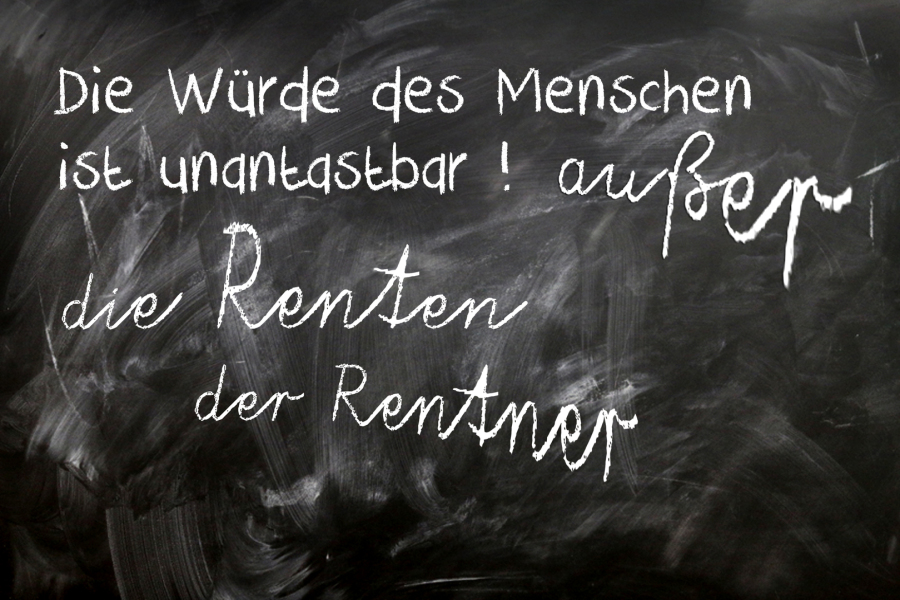 Die Würde des Menschen
ist unantastbar ! außer
die Renten
der Rentner